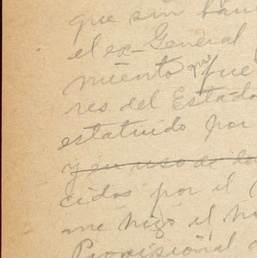 que sin
el ex-General
miento que fue
res del Estado
estatuido por
y en uso de lo
cidos por el
me hizo el
Provisional